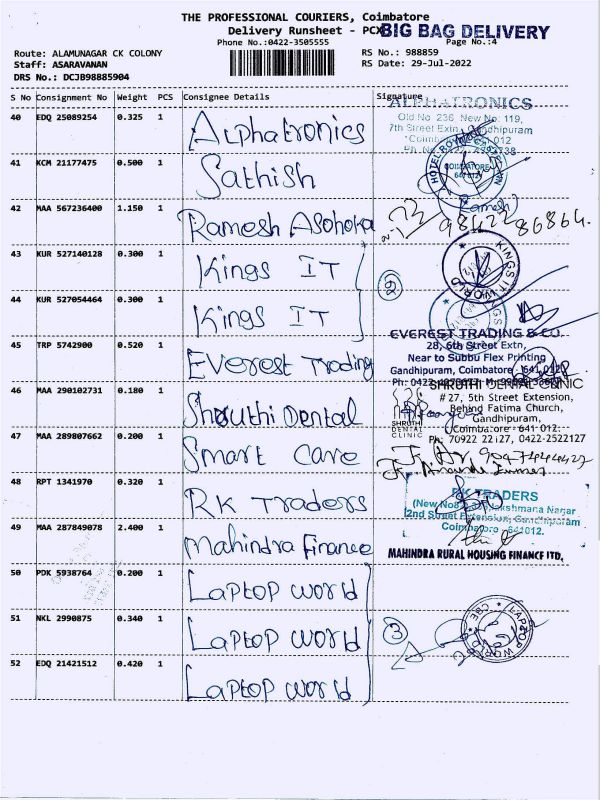 THE PROFESSIONAL COURIERS, Coimbatore
Delivery Runsheet - PCX BIG BAG DELIVERY
Phone No.:0422-3505555 Page No.:4
Route: ALAMUNAGAR CK COLONY RS No.: 988859
Staff: ASARAVANAN RS Date: 29-Jul-2022
DRS No.: DCJB98885904
S No Consignment No Weight PCS Consignee Details Signature
ALPHATRONICS
Old No. 236, New No: 119,
7th Street Extn., Gandhipuram
40 EDQ 25089254 0.325 1 Alphatronics
41 KCM 21177475 0.500 1 Sathish
COIMBATORE
42 MAA 567236400 1.150 1 Ramesh Asohoka
(Ramesh)
98422 86864.
43 KUR 527140128 0.300 1 Kings IT
KINGS IT WORLD
44 KUR 527054464 0.300 1 Kings IT
EVEREST TRADING & CO.
28, 6th Street Extn,
Near to Subbu Flex Printing
Gandhipuram, Coimbatore - 641 012
45 TRP 5742900 0.520 1 Everest Trading
SHRUTHI DENTAL CLINIC
46 MAA 290102731 0.180 1 Shruthi Dental
# 27, 5th Street Extension,
Behind Fatima Church,
Gandhipuram,
Coimbatore - 641 012.
Ph: 70922 22127, 0422-2522127
SHRUTHI
DENTAL
CLINIC
47 MAA 289807662 0.200 1 Smart Care
48 RPT 1341970 0.320 1 RK Traders
RK TRADERS
2nd Street Extension, Gandhipuram
Coimbatore - 641012.
49 MAA 287849078 2.400 1 Mahindra Finance
MAHINDRA RURAL HOUSING FINANCE LTD,
50 PDK 5938764 0.200 1 Laptop world
51 NKL 2990875 0.340 1 Laptop world
3
LAPTOP WORLD CBE
52 EDQ 21421512 0.420 1 Laptop world